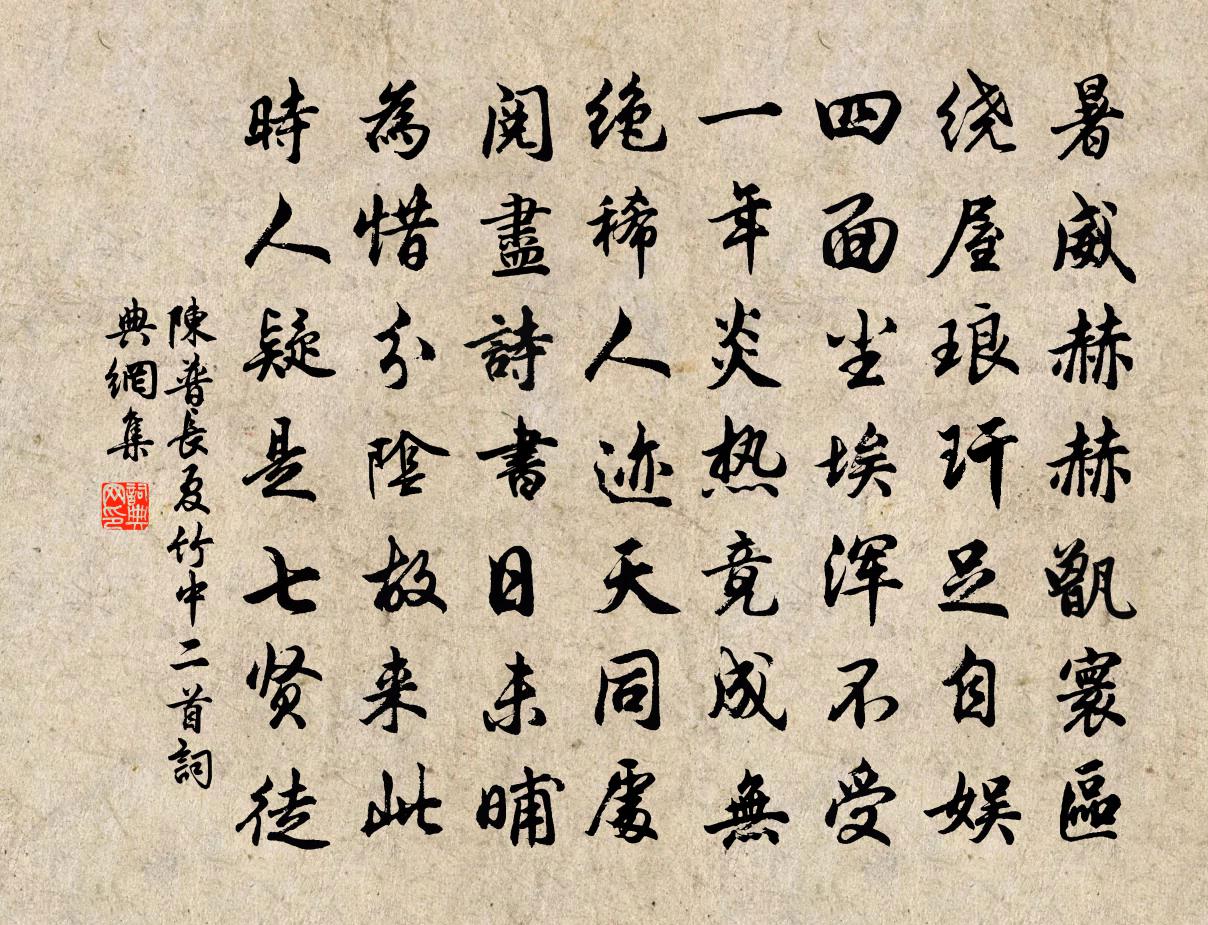 暑威赫赫甑寰區
绕屋琅玕足自娱
四面尘埃浑不受
一年炎热竟成無
绝稀人迹天同處
閱盡詩書日未晡
為惜分陰故来此
時人疑是七贤徒
陳普長夏竹中二首詞
典網集
詞典
网印